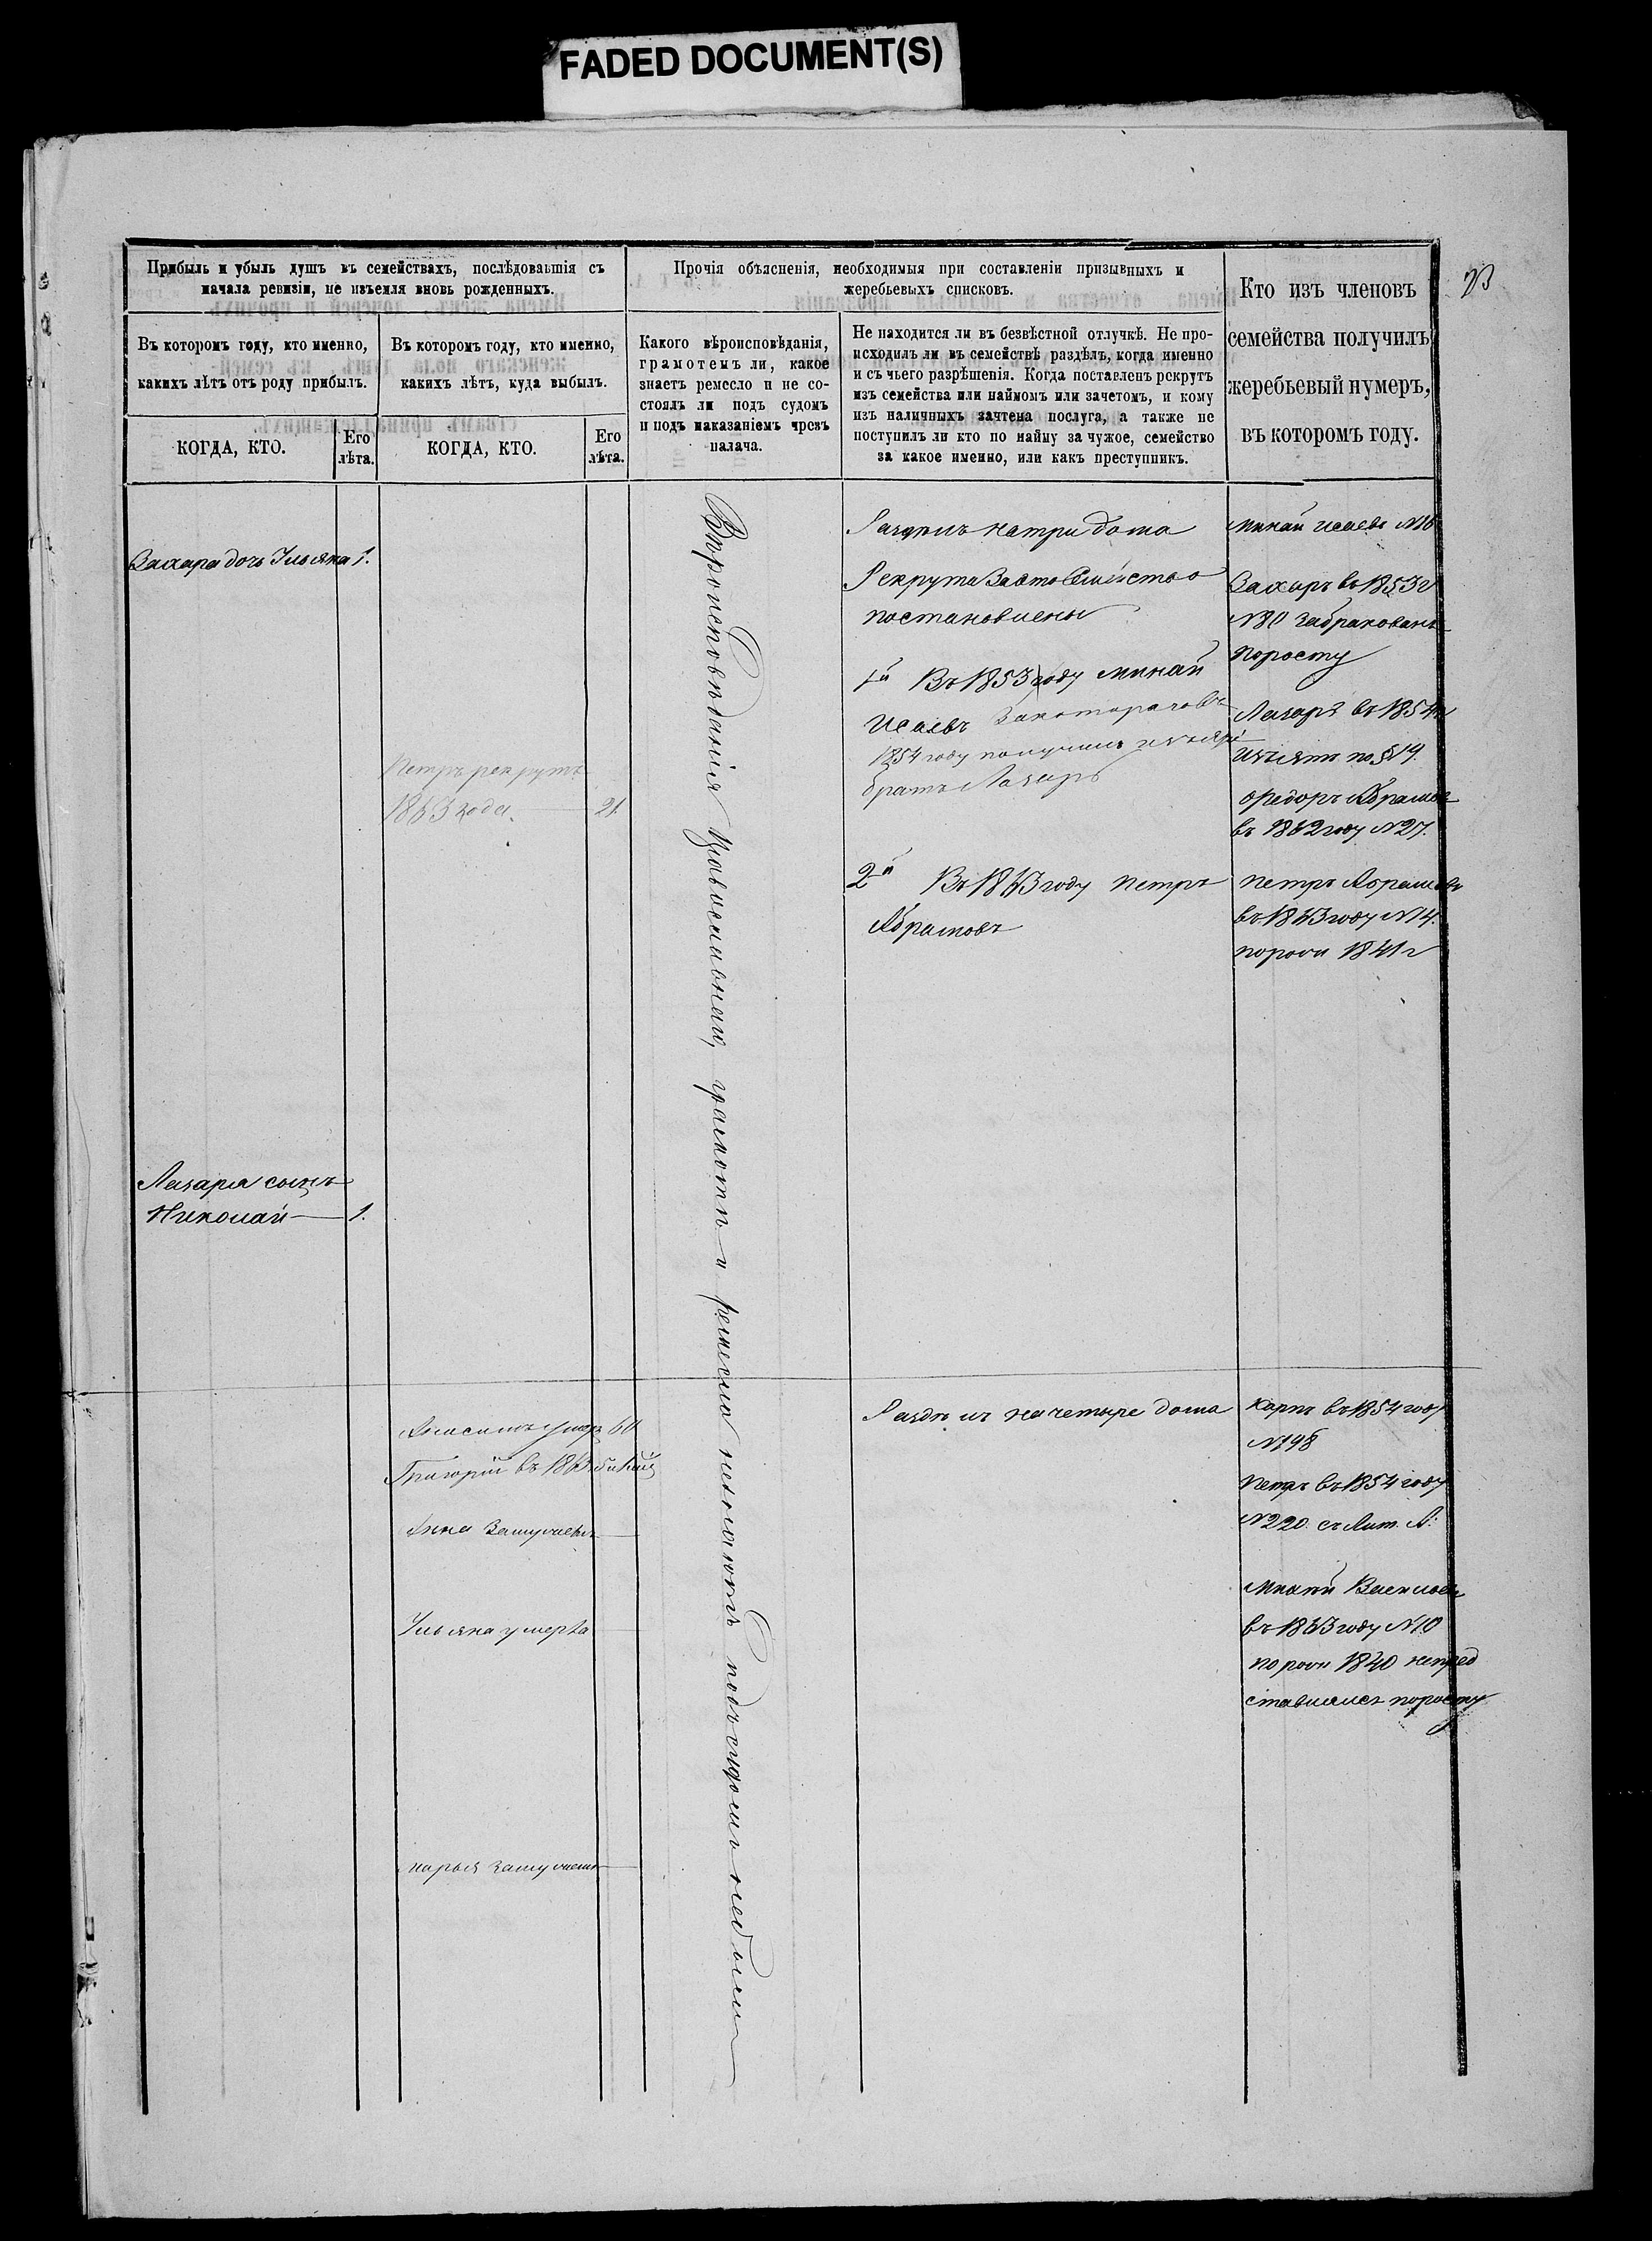 FADED DOCUMENT(S)
Прибыль и убыль душъ въ семействахъ, послѣдовавшія съ
начала ревизіи, не изъемля вновь рожденныхъ.
Въ которомъ году, кто именно,
какихъ лѣтъ отъ роду прибылъ.
КОГДА, КТО.
Его
лѣта.
Въ которомъ году, кто именно,
какихъ лѣтъ, куда выбылъ.
КОГДА, КТО.
Его
лѣта.
Прочія объясненія, необходимыя при составленіи призывныхъ и
жеребьевыхъ списковъ.
Какого вѣроисповѣданія,
грамотемъ ли, какое
знаетъ ремесло и не со-
стоялъ ли подъ судомъ
и подъ наказаніемъ чрезъ
палача.
Не находится ли въ безвѣстной отлучкѣ. Не про-
исходилъ ли въ семействѣ раздѣлъ, когда именно
и съ чьего разрѣшенія. Когда поставленъ рекрутъ
изъ семейства или наймомъ или зачетомъ, и кому
изъ наличныхъ зачтена послуга, а также не
поступилъ ли кто по найму за чужое, семейство
за какое именно, или какъ преступникъ.
Кто изъ членовъ
семейства получилъ
жеребьевый нумеръ,
въ которомъ году.
Захара дочь Ульяна 1.
Лазаря сынъ
Николай 1.
Петръ рекрутъ
1863 года. 21.
Григорій въ 1863
Анна Замужемъ
Ульяна умерла
марья замужемъ
Вѣроисповѣданія Православнаго, грамотѣ и ремесла незнаютъ подъ судомъ небыли
Раздѣлъ на три дома
Рекрута За это Семейство
постановлены
1й Въ 1853 году Минай
Исаевъ За котораго въ
1854 году получилъ
братъ Лазарь
2й Въ 1863 году Петръ
Абрамовъ
Раздѣлъ на четыре дома
Минай Исаевъ №16
Захаръ въ 1853 г
№80 Забракованъ
по росту
Лазарь въ 1854 г
Изъятъ по §19.
Федоръ Абрамовъ
въ 1862 году №27.
Петръ Абрамовъ
въ 1863 году №14.
1841 г
Карпъ въ 1854 году
№198
Петръ въ 1854 году
№220. съ Лит. А.
Минай Васильевъ
въ 1863 году №10
1840 непред
ставлялся по росту